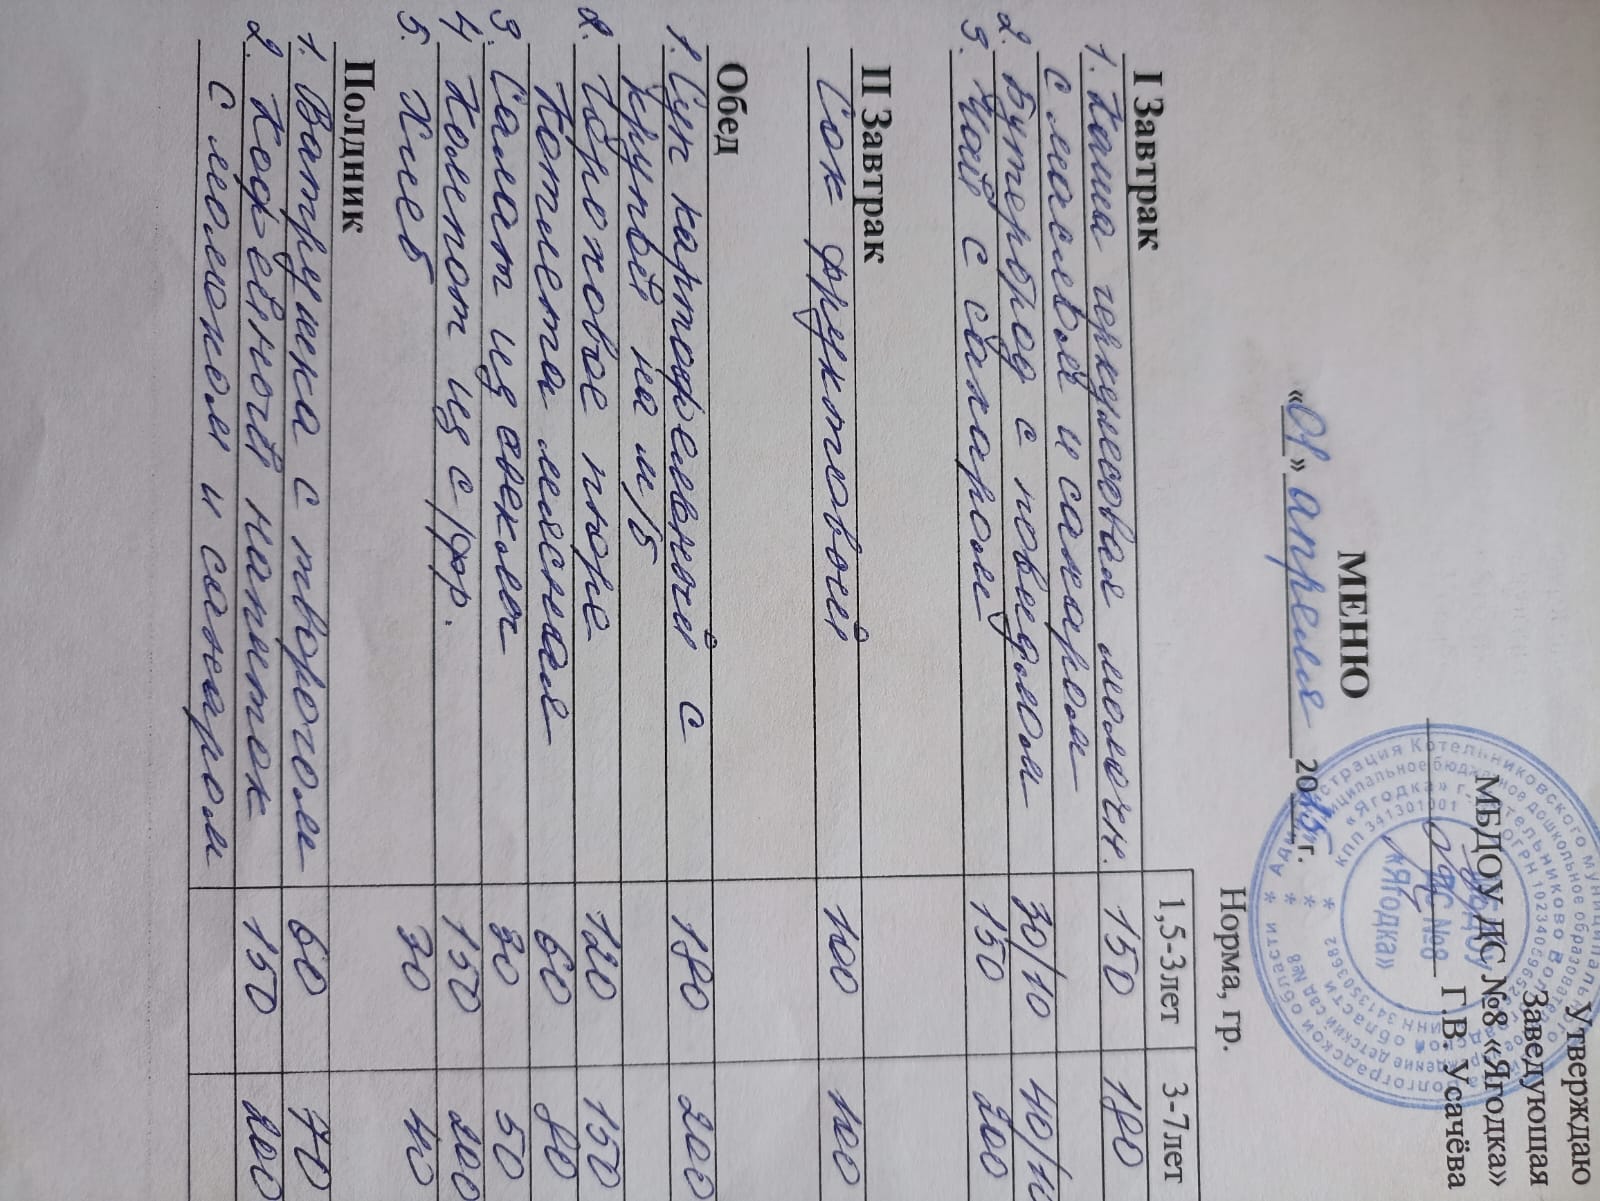 Утверждаю
Заведующая
МБДОУ ДС №8 «Ягодка»
Г.В. Усачёва
МЕНЮ
«01» апреля 2025 г.
Норма, гр.
1,5-3лет 3-7лет
I Завтрак
1. Каша геркулесовая молочн. 150 180
с маслом и сахаром
2. Бутерброд с повидлом 30/10 40/10
3. Чай с сахаром 150 200
II Завтрак
Сок фруктовый 100 100
Обед
1. Суп картофельный с 180 200
крупой на м/б
2. Гороховое пюре 120 150
Котлета мясная 60 80
3. Салат из свеклы 30 50
4. Компот из с/фр. 150 200
5. Хлеб 30 40
Полдник
1. Ватрушка с творогом 60 70
2. Кофейный напиток 150 200
с молоком и сахаром
МБДОУ
ДС №8
«Ягодка»